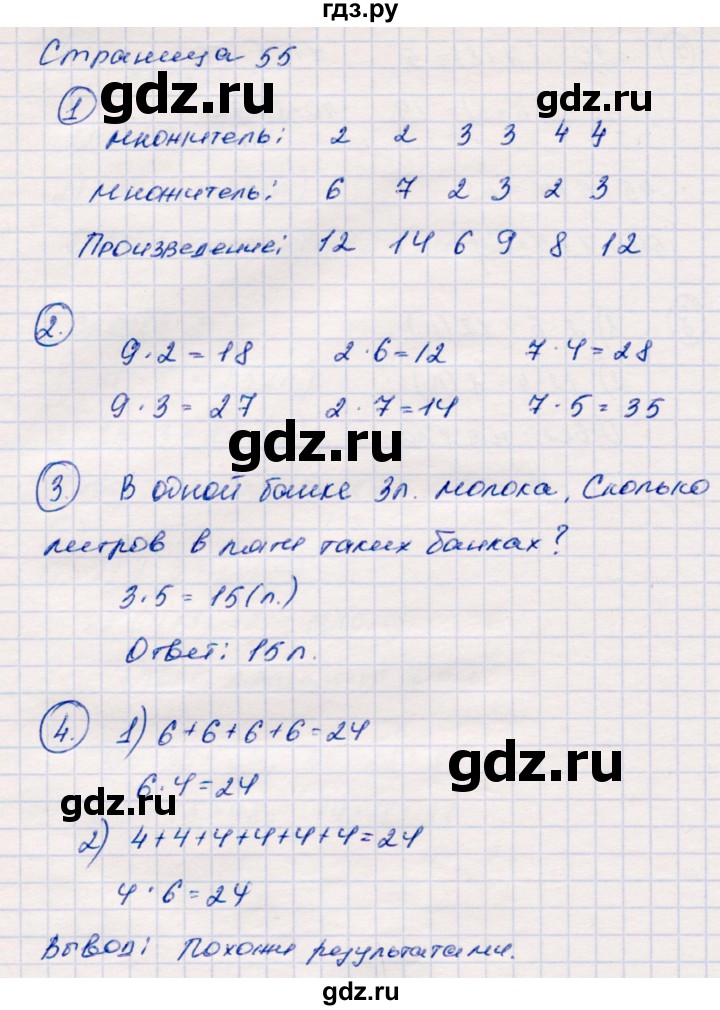 гдз.ру
Страница 55
gdz.ru
gdz.ru
1
Множитель: 2 2 3 3 4 4
Множитель: 6 7 2 3 2 3
Произведение: 12 14 6 9 8 12
2.
9·2=18 2·6=12 7·4=28
9·3=27 2·7=14 7·5=35
gdz.ru
3. В одной банке 3л. молока, Сколько
литров в пяти таких банках?
3·5=15(л.)
Ответ: 15л.
4. 1) 6+6+6+6=24
gdz.ru
6·4=24
gdz.ru
2) 4+4+4+4+4+4=24
4·6=24
Вывод: Похожи результатами.
gdz.ru